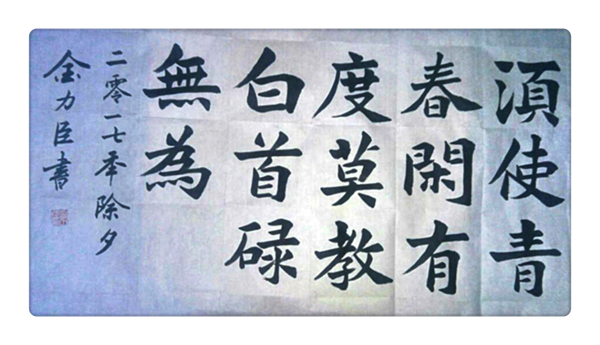 湏使青
春閑有
度莫教
白首碌
無為
二零一七年除夕
金力臣書